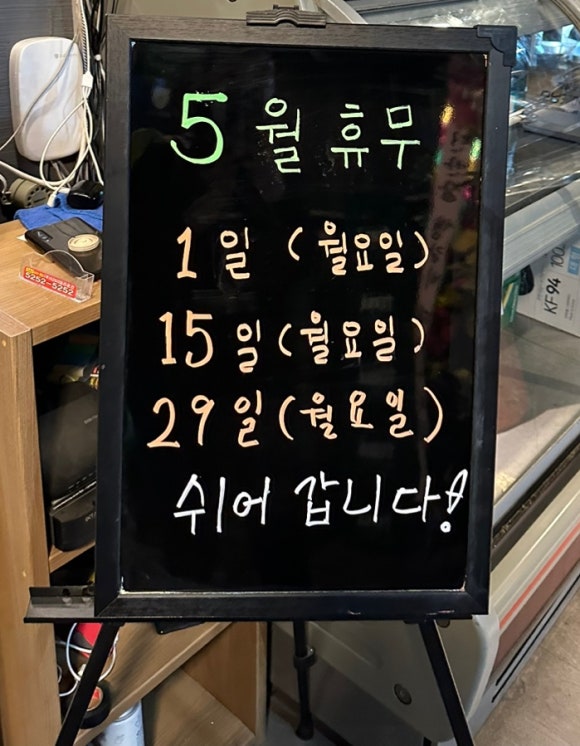 5월 휴무
1일 (월요일)
15일 (월요일)
29일 (월요일)
쉬어 갑니다!
5252-5252
KF94